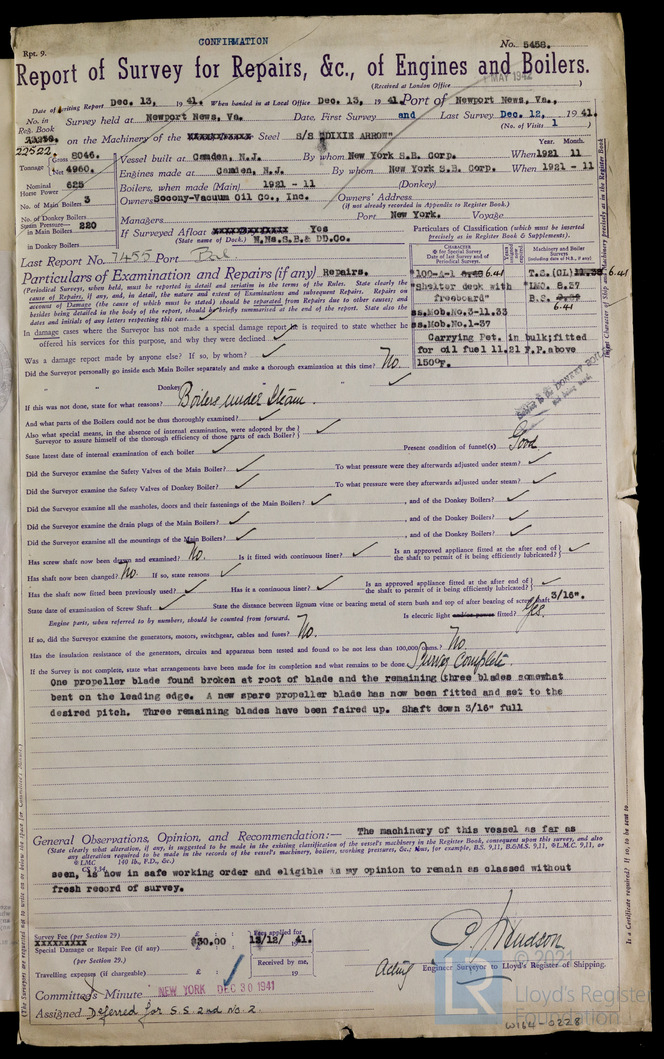 CONFIRMATION
Rpt. 9.
No. 5458.
Report of Survey for Repairs, &c., of Engines and Boilers.
(Received at London Office
MAY 1942
Date of writing Report Dec. 13, 1941. When handed in at Local Office Dec. 13, 1941. Port of Newport News, Va.,
No. in Reg. Book
22522.
Survey held at Newport News, Va. Date, First Survey and Last Survey Dec. 12, 1941.
(No. of Visits 1
on the Machinery of the Steel S/S "DIXIE ARROW"
Tonnage Gross 8046.
Net 4960.
Vessel built at Camden, N.J. By whom New York S.B. Corp. When 1921 11
Year. Month.
Engines made at Camden, N.J. By whom New York S.B. Corp. When 1921 - 11
Nominal Horse Power 625
Boilers, when made (Main) 1921 - 11 (Donkey)
No. of Main Boilers 3
Owners Socony-Vacuum Oil Co., Inc. Owners' Address
(if not already recorded in Appendix to Register Book.)
No. of Donkey Boilers
Managers Port New York. Voyage
Steam Pressure— in Main Boilers 220
in Donkey Boilers
If Surveyed Afloat Yes
(State name of Dock.) N.Ns.S.B.& DD.Co.
Particulars of Classification (which must be inserted precisely as in Register Book & Supplements).
Last Report No. 7455 Port Bal.
CHARACTER
✠ for Special Survey
Date of last Survey and of Periodical Surveys.
Machinery and Boiler Surveys
(including date of N.B., if any)
*100-A-1 6.41
"Shelter deck with freeboard"
ss.Mob.No.3-11.33
ss.Mob.No.1-37
T.S.(CL) 6.41
*LMC. 8.37
B.S. 6.41
Carrying Pet. in bulk;fitted for oil fuel 11.21 F.P.above 150°F.
Particulars of Examination and Repairs (if any) Repairs.
(Periodical Surveys, when held, must be reported in detail and seriatim in the terms of the Rules. State clearly the cause of Repairs, if any, and, in detail, the nature and extent of Examinations and subsequent Repairs. Repairs on account of Damage (the cause of which must be stated) should be separated from Repairs due to other causes; and besides being detailed in the body of the report, should be briefly summarised at the end of the report. State also the dates and initials of any letters respecting this case.
In damage cases where the Surveyor has not made a special damage report he is required to state whether he offered his services for this purpose, and why they were declined ✓
Was a damage report made by anyone else? If so, by whom? ✓
Did the Surveyor personally go inside each Main Boiler separately and make a thorough examination at this time? No.
" " Donkey " " ✓
If this was not done, state for what reasons? Boilers under steam.
And what parts of the Boilers could not be thus thoroughly examined? ✓
Also what special means, in the absence of internal examination, were adopted by the Surveyor to assure himself of the thorough efficiency of those parts of each Boiler? ✓
State latest date of internal examination of each boiler ✓ Present condition of funnel(s) Good
Did the Surveyor examine the Safety Valves of the Main Boiler? ✓ To what pressure were they afterwards adjusted under steam? ✓
Did the Surveyor examine the Safety Valves of Donkey Boiler? ✓ To what pressure were they afterwards adjusted under steam? ✓
Did the Surveyor examine all the manholes, doors and their fastenings of the Main Boilers? ✓ , and of the Donkey Boilers? ✓
Did the Surveyor examine the drain plugs of the Main Boilers? ✓ , and of the Donkey Boilers? ✓
Did the Surveyor examine all the mountings of the Main Boilers? ✓ , and of the Donkey Boilers? ✓
Has screw shaft now been drawn and examined? No. Is it fitted with continuous liner? ✓ Is an approved appliance fitted at the after end of the shaft to permit of it being efficiently lubricated? ✓
Has shaft now been changed? No. If so, state reasons ✓
Has the shaft now fitted been previously used? ✓ Has it a continuous liner? ✓ Is an approved appliance fitted at the after end of the shaft to permit of it being efficiently lubricated? ✓
State date of examination of Screw Shaft ✓ State the distance between lignum vitæ or bearing metal of stern bush and top of after bearing of screw shaft 3/16".
Engine parts, when referred to by numbers, should be counted from forward. Is electric light and/or power fitted? Yes.
If so, did the Surveyor examine the generators, motors, switchgear, cables and fuses? No.
Has the insulation resistance of the generators, circuits and apparatus been tested and found to be not less than 100,000 ohms? No.
If the Survey is not complete, state what arrangements have been made for its completion and what remains to be done. Survey Complete.
One propeller blade found broken at root of blade and the remaining three blades somewhat
bent on the leading edge. A new spare propeller blade has now been fitted and set to the
desired pitch. Three remaining blades have been faired up. Shaft down 3/16" full
General Observations, Opinion, and Recommendation:— The machinery of this vessel as far as
(State clearly what alteration, if any, is suggested to be made in the existing classification of the vessel's machinery in the Register Book, consequent upon this survey, and also any alteration required to be made in the records of the vessel's machinery, boilers, working pressures, &c.; thus, for example, B.S. 9,11, B.&M.S. 9,11, ✠L.M.C. 9,11, or
✠LMC 140 lb., F.D., &c.)
CS 3.34
seen, is now in safe working order and eligible in my opinion to remain as classed without
fresh record of survey.
Survey Fee (per Section 29) £ : :
Special Damage or Repair Fee (if any) (per Section 29.) $30.00
Travelling expenses (if chargeable) £ : :
Fees applied for
13/12/ 1941.
Received by me,
19
Acting Engineer Surveyor to Lloyd's Register of Shipping.
Committee's Minute NEW YORK DEC 30 1941
Assigned Deferred for S.S. 2nd No. 2.
Is a Certificate required? If so, to be sent to
© 2021
LR
Lloyd's Register
Foundation
W164-0228